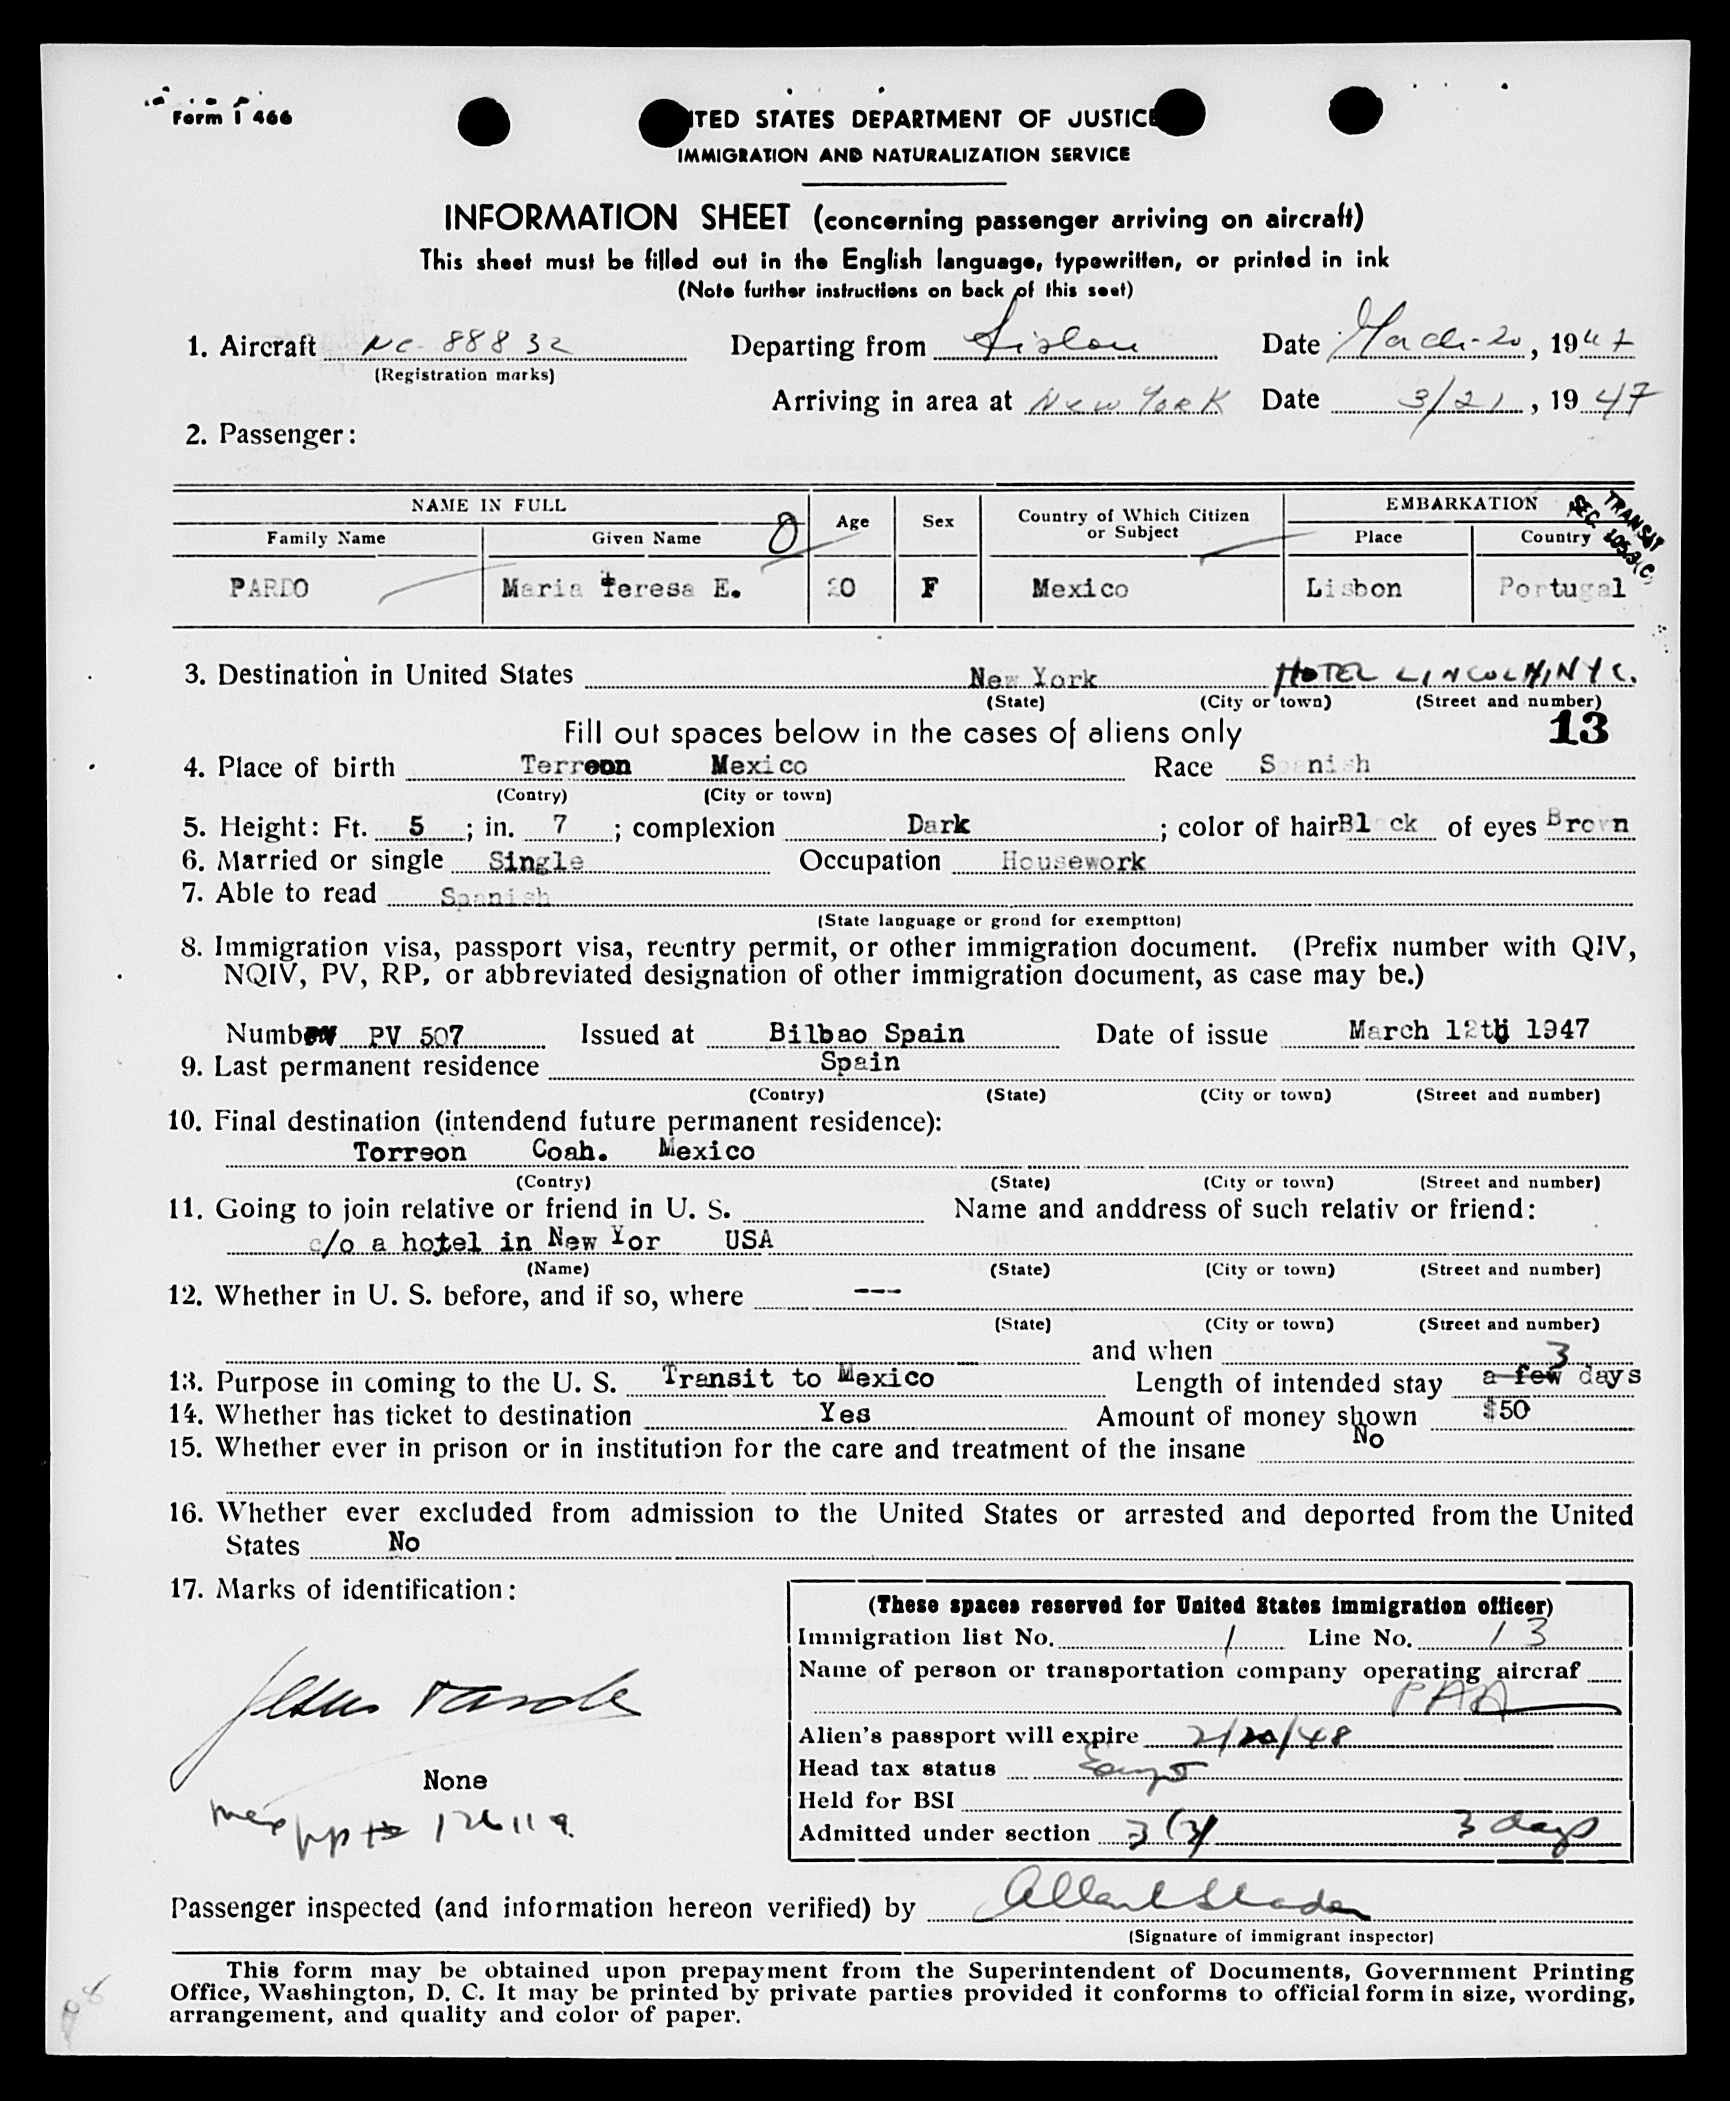 Form I 466
ITED STATES DEPARTMENT OF JUSTICE
IMMIGRATION AND NATURALIZATION SERVICE
INFORMATION SHEET (concerning passenger arriving on aircraft)
This sheet must be filled out in the English language, typewritten, or printed in ink
(Note further instructions on back of this seet)
1. Aircraft NC-88832 Departing from Lisbon Date March-20, 1947
(Registration marks)
Arriving in area at New York Date 3/21, 1947
2. Passenger:
NAME IN FULL Age Sex Country of Which Citizen or Subject EMBARKATION
Family Name Given Name Place Country
TRANSIT
SEC. 105.3(C)
PARDO Maria Teresa E. 20 F Mexico Lisbon Portugal
3. Destination in United States New York HOTEL LINCOLN, NYC.
(State) (City or town) (Street and number)
Fill out spaces below in the cases of aliens only 13
4. Place of birth Terreon Mexico Race Spanish
(Contry) (City or town)
5. Height: Ft. 5; in. 7; complexion Dark; color of hair Black of eyes Brown
6. Married or single Single Occupation Housework
7. Able to read Spanish
(State language or grond for exemptton)
8. Immigration visa, passport visa, reentry permit, or other immigration document. (Prefix number with QIV,
NQIV, PV, RP, or abbreviated designation of other immigration document, as case may be.)
Number PV 507 Issued at Bilbao Spain Date of issue March 12th 1947
9. Last permanent residence Spain
(Contry) (State) (City or town) (Street and number)
10. Final destination (intendend future permanent residence):
Torreon Coah. Mexico
(Contry) (State) (City or town) (Street and number)
11. Going to join relative or friend in U. S. Name and anddress of such relativ or friend:
c/o a hotel in New Yor USA
(Name) (State) (City or town) (Street and number)
12. Whether in U. S. before, and if so, where ---
(State) (City or town) (Street and number)
and when
13. Purpose in coming to the U. S. Transit to Mexico Length of intended stay a few 3 days
14. Whether has ticket to destination Yes Amount of money shown $50
15. Whether ever in prison or in institution for the care and treatment of the insane No
16. Whether ever excluded from admission to the United States or arrested and deported from the United
States No
17. Marks of identification:
None
126119
(These spaces reserved for United States immigration officer)
Immigration list No. 1 Line No. 13
Name of person or transportation company operating aircraf
PAA
Alien's passport will expire 2/20/48
Head tax status Exempt
Held for BSI
Admitted under section 3(3) 3 days
Passenger inspected (and information hereon verified) by
(Signature of immigrant inspector)
This form may be obtained upon prepayment from the Superintendent of Documents, Government Printing
Office, Washington, D. C. It may be printed by private parties provided it conforms to official form in size, wording,
arrangement, and quality and color of paper.